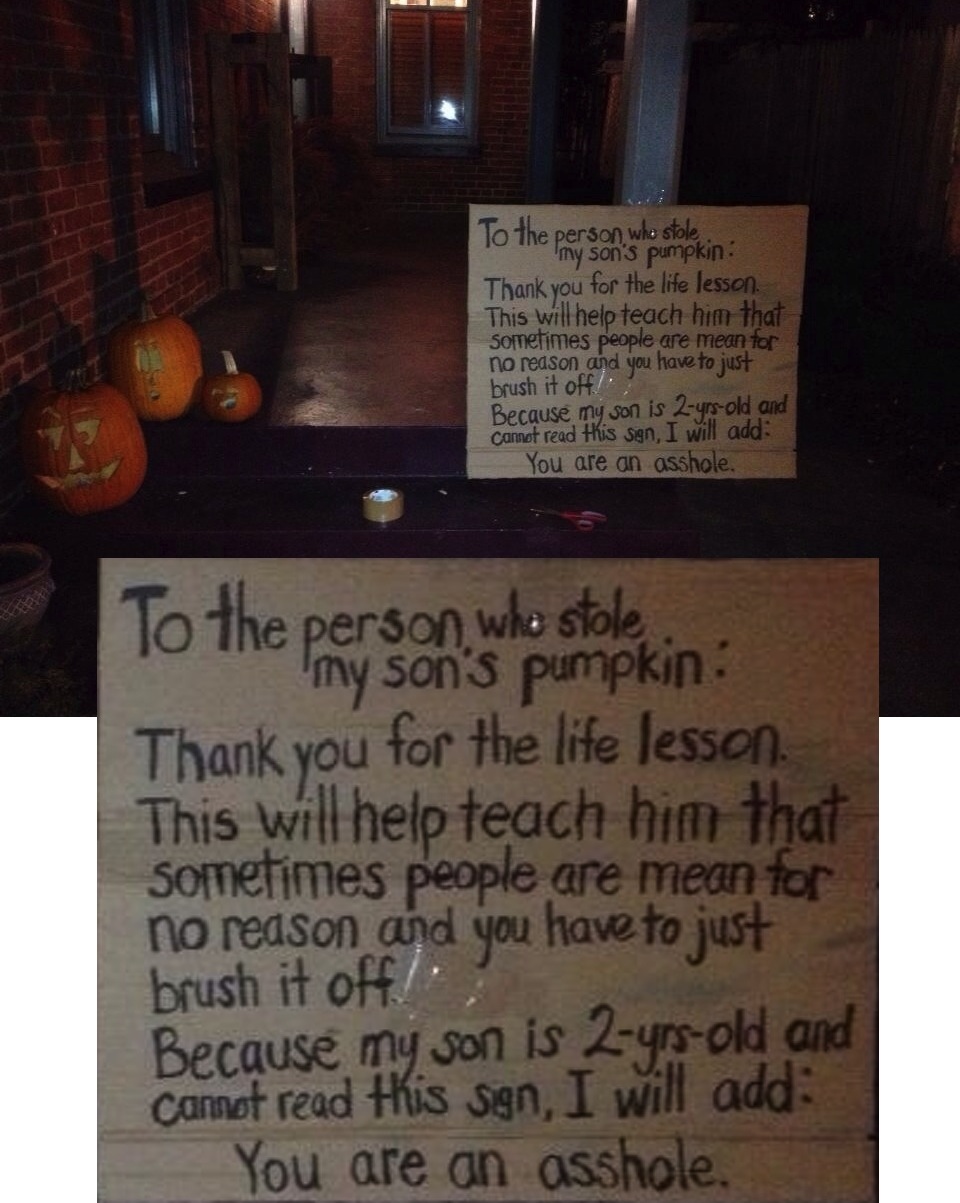 To the person who stole
my son's pumpkin:
Thank you for the life lesson.
This will help teach him that
sometimes people are mean for
no reason and you have to just
brush it off.
Because my son is 2-yrs-old and
cannot read this sign, I will add:
You are an asshole.
To the person who stole
my son's pumpkin:
Thank you for the life lesson.
This will help teach him that
sometimes people are mean for
no reason and you have to just
brush it off.
Because my son is 2-yrs-old and
cannot read this sign, I will add:
You are an asshole.